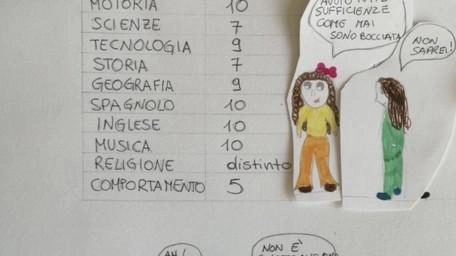 MOTORIA 10
SCIENZE 7
TECNOLOGIA 9
STORIA 7
GEOGRAFIA 9
SPAGNOLO 10
INGLESE 10
MUSICA 10
RELIGIONE distinto
COMPORTAMENTO 5
SUFFICIENZE
COME MAI
SONO BOCCIATA
NON
SAPREI!
AH!
NON È